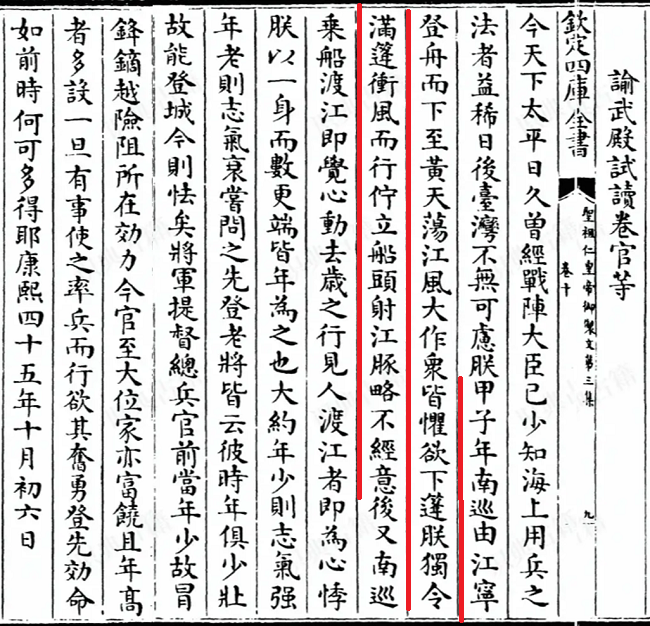 諭武殿試讀卷官等
欽定四庫全書
聖祖仁皇帝御製文第三集
卷十
九
今天下太平日久曽經戰陣大臣已少知海上用兵之
法者益稀日後臺灣不無可慮朕甲子年南巡由江寧
登舟而下至黃天蕩江風大作衆皆懼欲下蓬朕獨令
滿蓬衝風而行佇立船頭射江豚略不經意後又南巡
乗船渡江即覺心動去歳之行見人渡江者即為心悸
朕以一身而數更端皆年為之也大約年少則志氣强
年老則志氣衰嘗問之先登老將皆云彼時年俱少壯
故能登城今則怯矣將軍提督總兵官前當年少故冒
鋒鏑越險阻所在効力今官至大位家亦富饒且年髙
者多設一旦有事使之率兵而行欲其奮勇登先効命
如前時何可多得耶康熙四十五年十月初六日